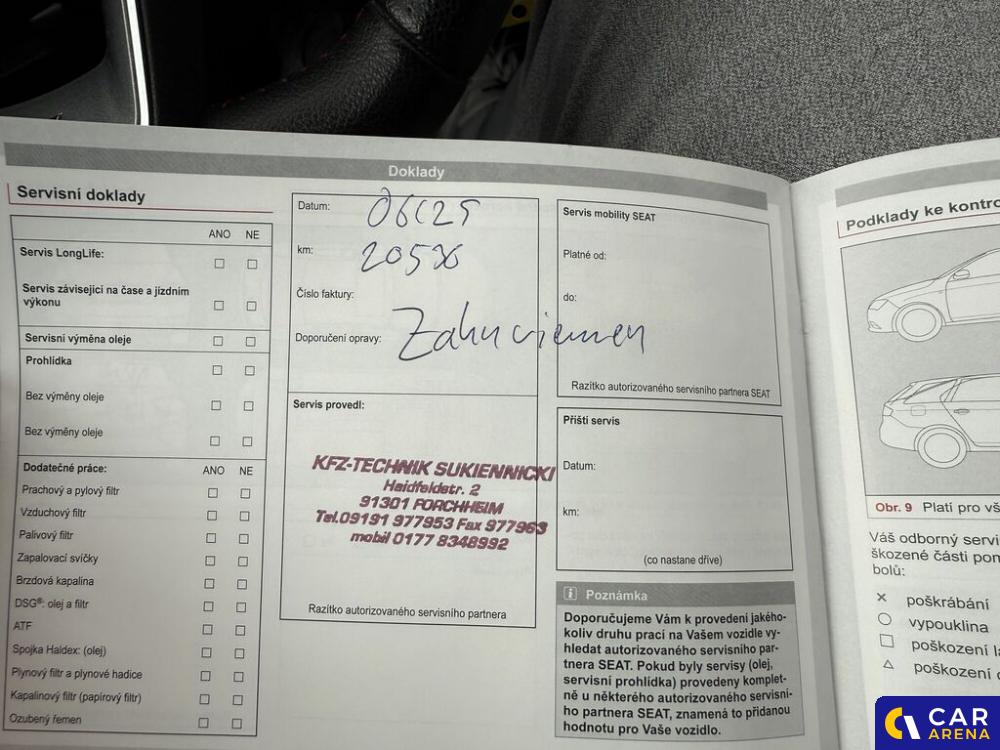 Doklady
Servisní doklady
ANO NE
Servis LongLife:
Servis závisející na čase a jízdním
výkonu
Servisní výměna oleje
Prohlídka
Bez výměny oleje
Bez výměny oleje
Dodatečné práce: ANO NE
Prachový a pylový filtr
Vzduchový filtr
Palivový filtr
Zapalovací svíčky
Brzdová kapalina
DSG®: olej a filtr
ATF
Spojka Haldex: (olej)
Plynový filtr a plynové hadice
Kapalinový filtr (papírový filtr)
Ozubený řemen
Datum:
km:
Číslo faktury:
Doporučení opravy: Zahnriemen
Servis provedl:
KFZ-TECHNIK SUKIENNICKI
Haidfeldstr. 2
91301 FORCHHEIM
Tel.09191 977953 Fax 977963
mobil 0177 8348992
Razítko autorizovaného servisního partnera
Servis mobility SEAT
Platné od:
do:
Razítko autorizovaného servisního partnera SEAT
Příští servis
Datum:
km:
(co nastane dříve)
i Poznámka
Doporučujeme Vám k provedení jakého-
koliv druhu prací na Vašem vozidle vy-
hledat autorizovaného servisního par-
tnera SEAT. Pokud byly servisy (olej,
servisní prohlídka) provedeny komplet-
ně u některého autorizovaného servisní-
ho partnera SEAT, znamená to přidanou
hodnotu pro Vaše vozidlo.
Podklady ke
Obr. 9 Platí pro
Váš odborný
škozené části
bolů:
poškrábání
vypouklina
poškození
poškození
CAR
ARENA